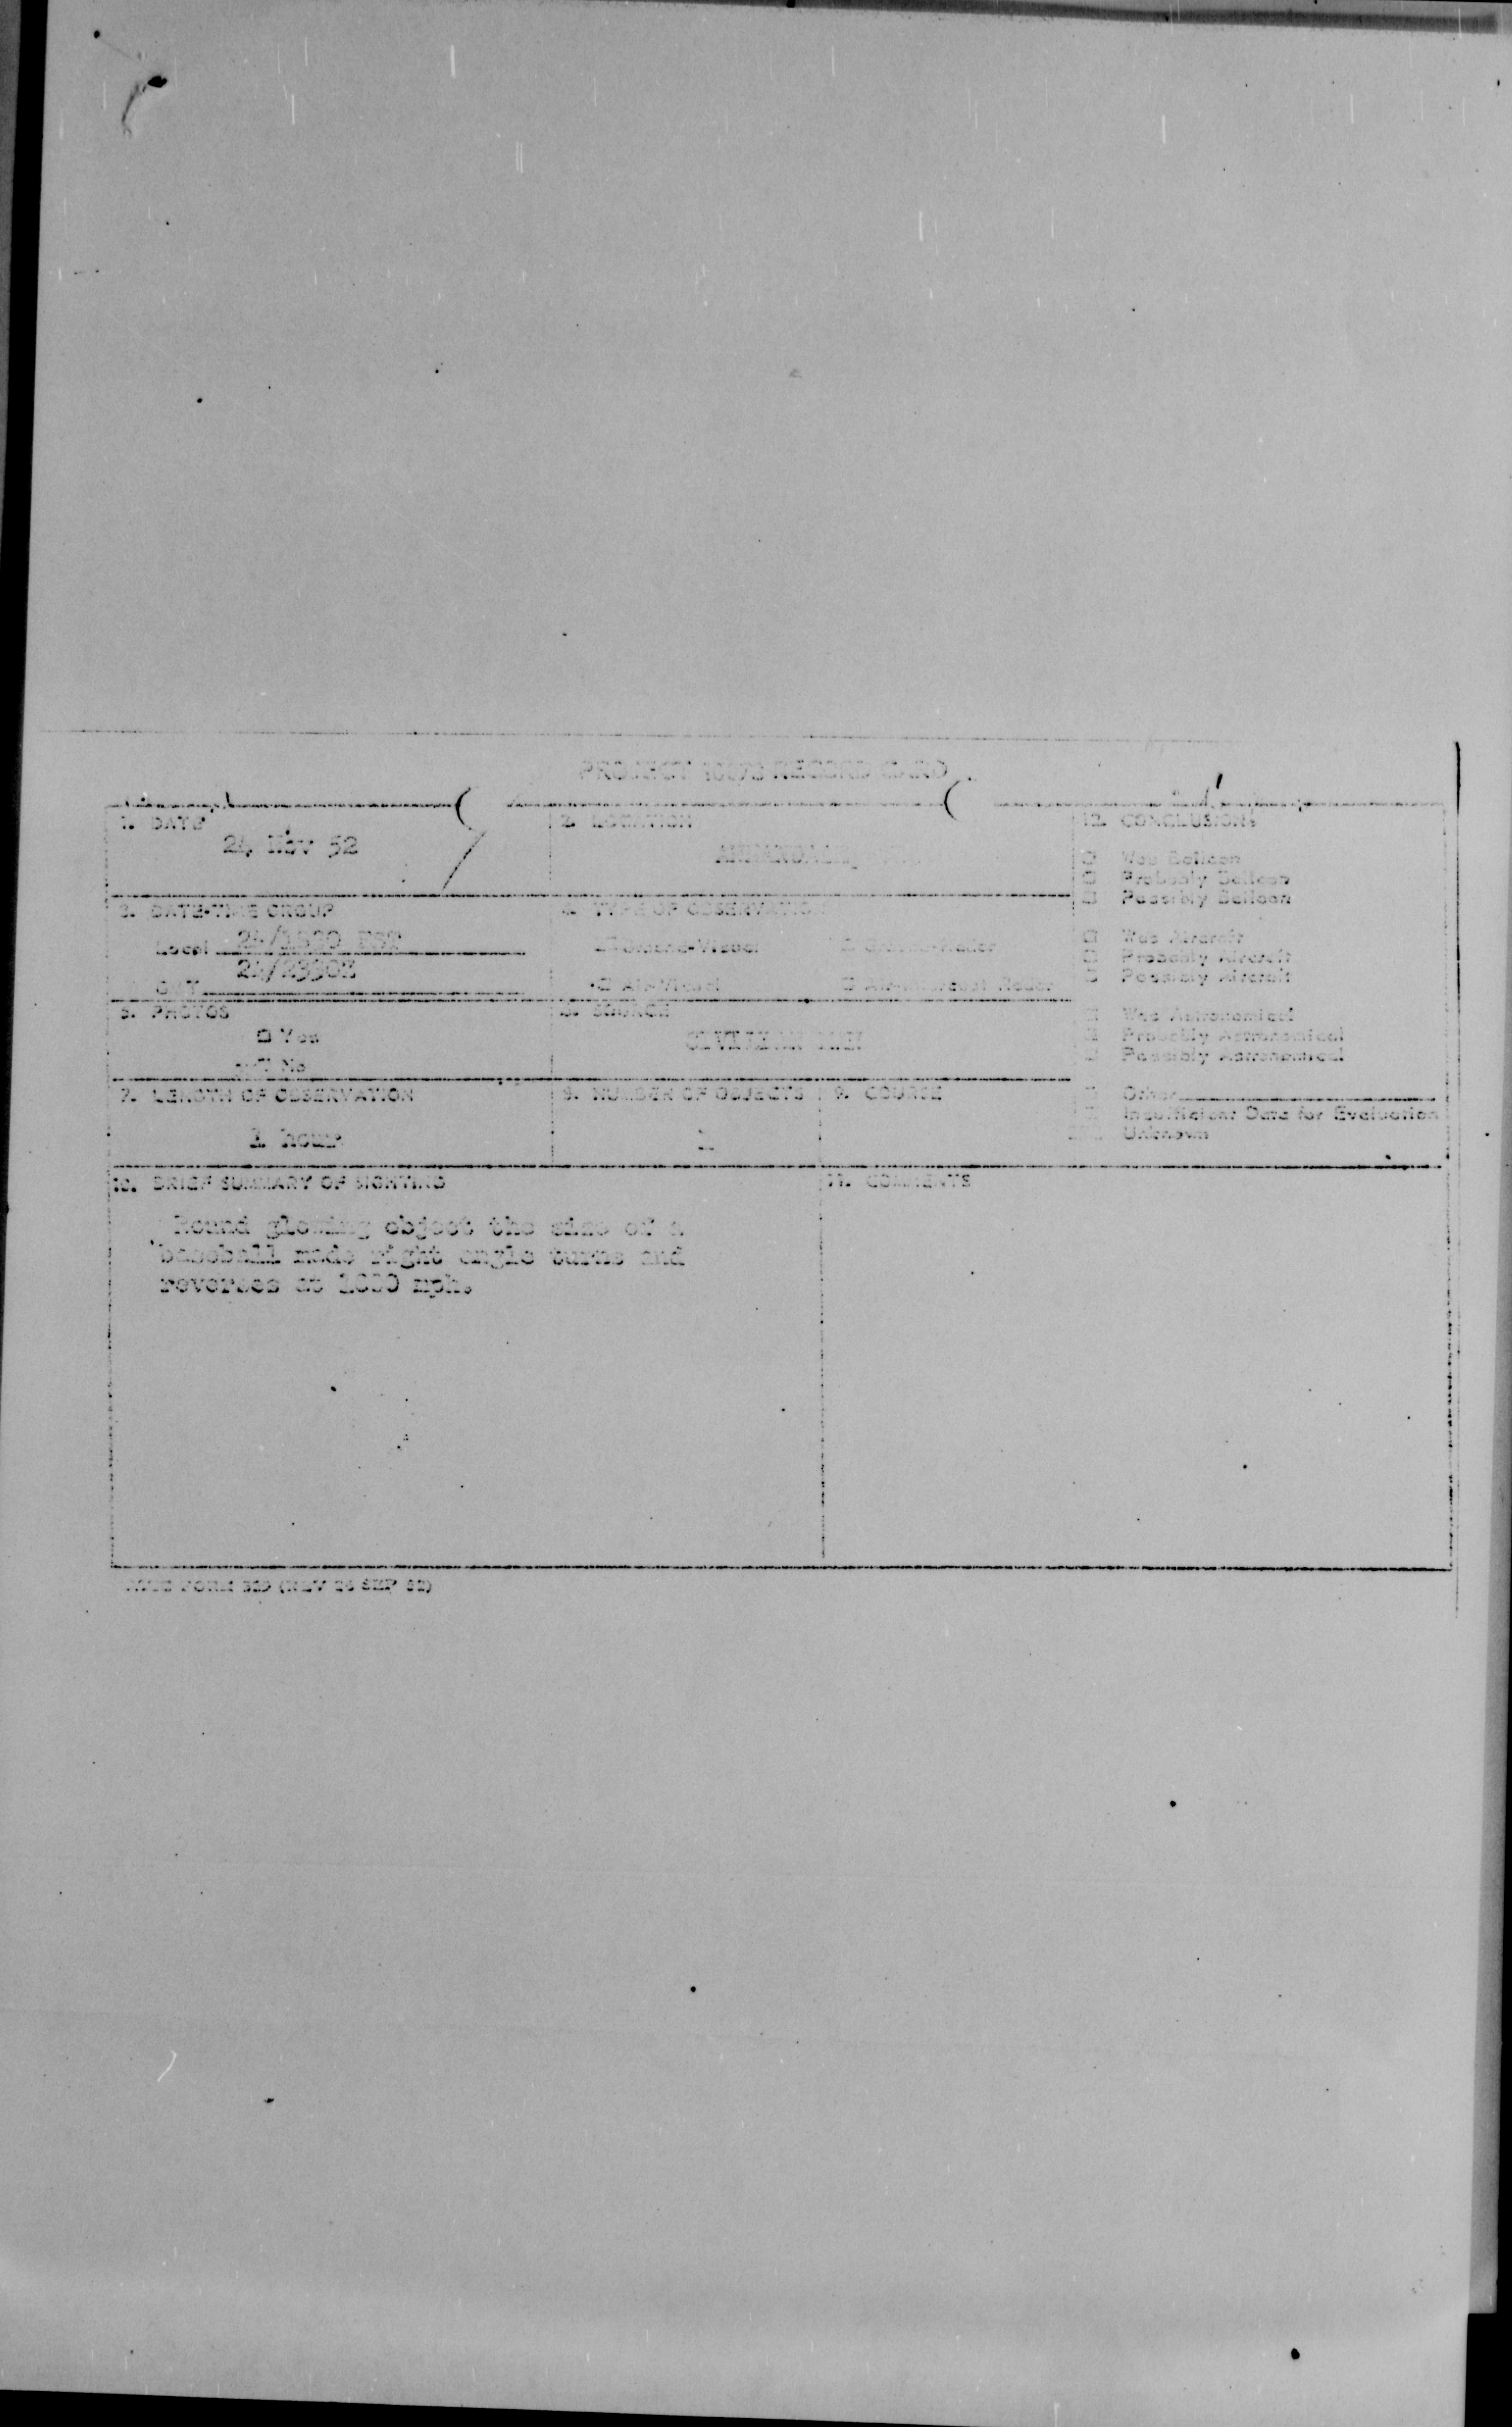 PROJECT 10073 RECORD CARD
1. DATE
24 Nov 52
2. LOCATION
12. CONCLUSIONS
□ Was Balloon
□ Probably Balloon
□ Possibly Balloon
□ Was Aircraft
□ Probably Aircraft
□ Possibly Aircraft
□ Was Astronomical
□ Probably Astronomical
□ Possibly Astronomical
□ Other
Insufficient Data for Evaluation
Unknown
3. DATE-TIME GROUP
Local 24/1830 EST
GMT 24/2330Z
4. TYPE OF OBSERVATION
Ground-Visual □ Ground-Radar
□ Air-Visual □ Air-Intercept Radar
5. PHOTOS
□ Yes
No
6. SOURCE
CIVILIAN
7. LENGTH OF OBSERVATION
1 hour
8. NUMBER OF OBJECTS
9. COURSE
10. BRIEF SUMMARY OF SIGHTING
Round glowing object the size of a
baseball made right angle turns and
reverses at mph.
11. COMMENTS
ATIC FORM 329 (REV 26 SEP 52)